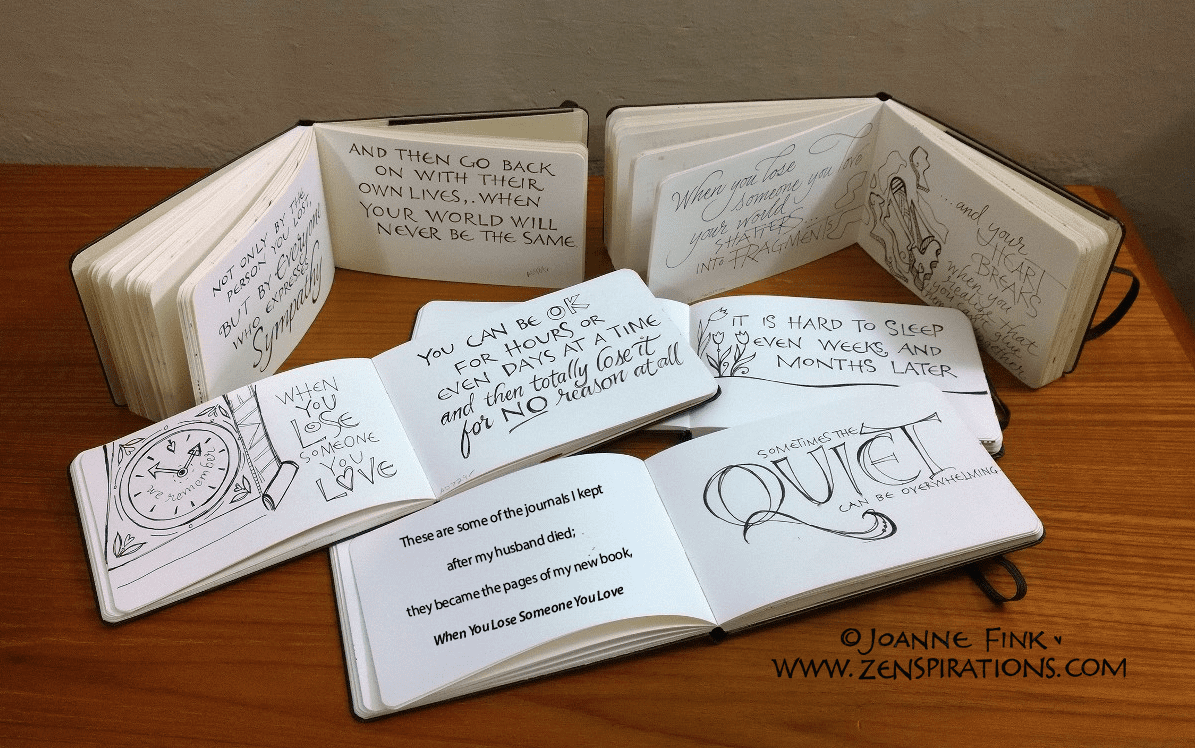 NOT ONLY BY THE
PERSON YOU LOST,
BUT BY everyone
WHO EXPRESSES
Sympathy
AND THEN GO BACK
ON WITH THEIR
OWN LIVES,.. WHEN
YOUR WORLD WILL
NEVER BE THE SAME.
When you lose
someone you love
your world
SHATTERS...
INTO FRAGMENTS
...and your
HEART
BREAKS
when you
realize
that
glue
together
WHEN
YOU
LOSE
SOMEONE
YOU
LOVE
we remember
YOU CAN BE OK
FOR HOURS OR
EVEN DAYS AT A TIME
and then totally lose it
for NO reason at all
IT IS HARD TO SLEEP
EVEN WEEKS, AND
MONTHS LATER
These are some of the journals I kept
after my husband died;
they became the pages of my new book,
When You Lose Someone You Love
SOMETIMES THE
QUIET
CAN BE OVERWHELMING
©JOANNE FINK
WWW.ZENSPIRATIONS.COM